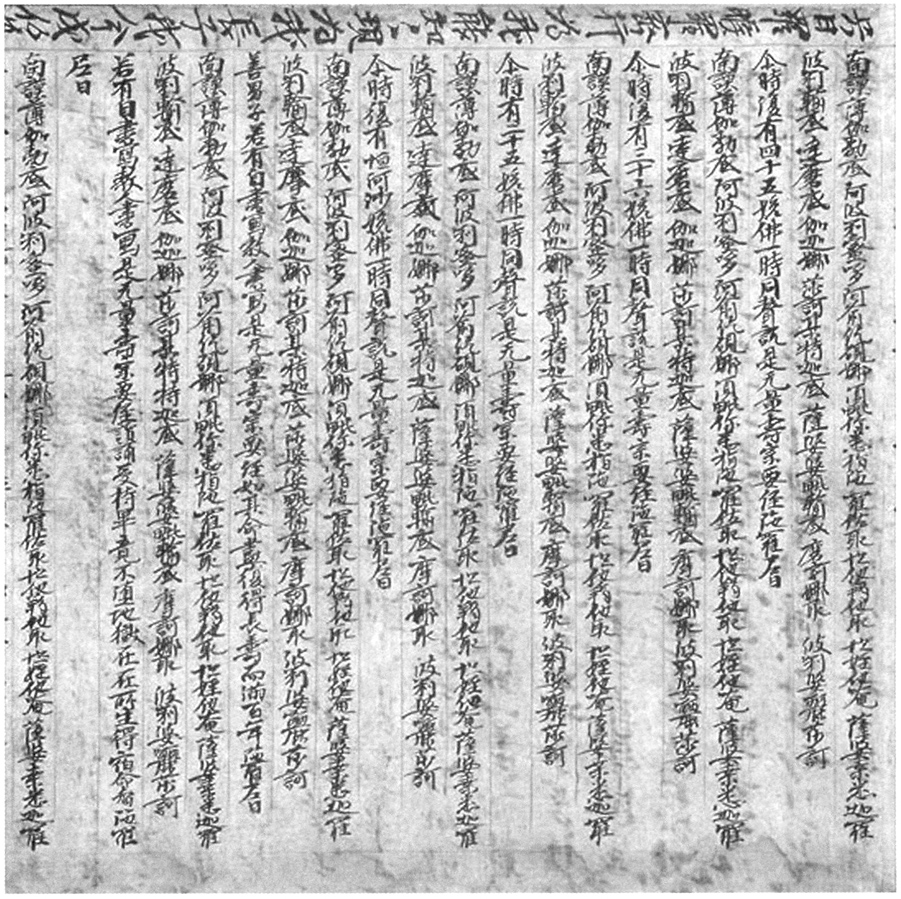 南謨薄伽勃底 阿波利蜜哆 阿喻紇硯娜 須毗你悉指陁 羅佐耶 怛他羯他耶 怛姪他唵 薩婆桑悉迦羅
波利輸底 達磨底 伽迦娜 莎訶其特迦底 薩婆婆毗輸底 摩訶娜耶 波利婆羅莎訶
尒時復有四十五姟佛一時同聲說是无量壽宗要經陁羅尼曰
南謨薄伽勃底 阿波利蜜哆 阿喻紇硯娜 須毗你悉指陁 羅佐耶 怛他羯他耶 怛姪他唵 薩婆桑悉迦羅
波利輸底 達磨底 伽迦娜 莎訶其特迦底 薩婆婆毗輸底 摩訶娜耶 波利婆羅莎訶
尒時復有三十六姟佛一時同聲說是无量壽宗要經陁羅尼曰
南謨薄伽勃底 阿波利蜜哆 阿喻紇硯娜 須毗你悉指陁 羅佐耶 怛他羯他耶 怛姪他唵 薩婆桑悉迦羅
波利輸底 達磨底 伽迦娜 莎訶其特迦底 薩婆婆毗輸底 摩訶娜耶 波利婆羅莎訶
尒時有二十五姟佛一時同聲說是无量壽宗要經陁羅尼曰
南謨薄伽勃底 阿波利蜜哆 阿喻紇硯娜 須毗你悉指陁 羅佐耶 怛他羯他耶 怛姪他唵 薩婆桑悉迦羅
波利輸底 達磨底 伽迦娜 莎訶其特迦底 薩婆婆毗輸底 摩訶娜耶 波利婆羅莎訶
尒時復有恒河沙姟佛一時同聲說是无量壽宗要經陁羅尼曰
南謨薄伽勃底 阿波利蜜哆 阿喻紇硯娜 須毗你悉指陁 羅佐耶 怛他羯他耶 怛姪他唵 薩婆桑悉迦羅
波利輸底 達磨底 伽迦娜 莎訶其特迦底 薩婆婆毗輸底 摩訶娜耶 波利婆羅莎訶
善男子若有自書寫教人書寫是无量壽宗要經如其命盡復得長壽而滿百年陁羅尼曰
南謨薄伽勃底 阿波利蜜哆 阿喻紇硯娜 須毗你悉指陁 羅佐耶 怛他羯他耶 怛姪他唵 薩婆桑悉迦羅
波利輸底 達磨底 伽迦娜 莎訶其特特迦底 薩婆婆毗輸底 摩訶娜耶 波利婆羅莎訶
若有自書寫教人書寫是无量壽宗要經讀誦受持畢竟不墮地獄在在所生得宿命智陁羅
尼曰
南謨薄伽勃底 阿波利蜜哆 阿喻紇硯娜 須毗你悉指陁 羅佐耶 怛他羯他耶 怛姪他唵 薩婆桑悉迦羅